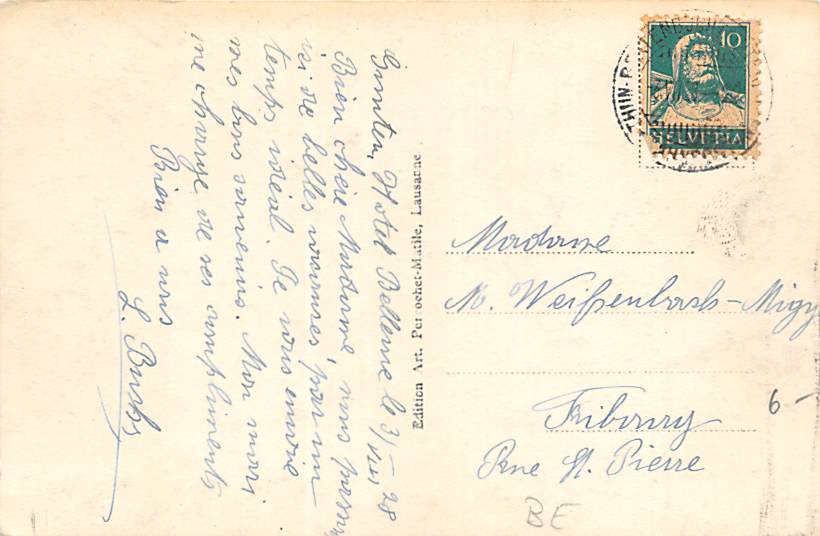 Gunten, Hôtel Bellevue le 3/VIII 28
Bien chère Madame, nous passons
ici de belles vacances, par un
temps idéal. Je vous envoie
mes bons souvenirs. Mon mari
me charge de ses compliments
Bien à vous
L.
Edition Art. Perrochet-Matile, Lausanne
10
HELVETIA
THUN
Madame
M. Weißenbach-Migy
Fribourg
Rue St. Pierre
6-
BE